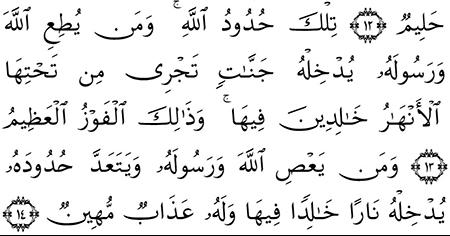 حَلِيمٌ ١٢ تِلْكَ حُدُودُ ٱللَّهِ ۚ وَمَن يُطِعِ ٱللَّهَ
وَرَسُولَهُۥ يُدْخِلْهُ جَنَّٰتٍ تَجْرِى مِن تَحْتِهَا
ٱلْأَنْهَٰرُ خَٰلِدِينَ فِيهَا ۚ وَذَٰلِكَ ٱلْفَوْزُ ٱلْعَظِيمُ
١٣ وَمَن يَعْصِ ٱللَّهَ وَرَسُولَهُۥ وَيَتَعَدَّ حُدُودَهُۥ
يُدْخِلْهُ نَارًا خَٰلِدًا فِيهَا وَلَهُۥ عَذَابٌ مُّهِينٌ ١٤